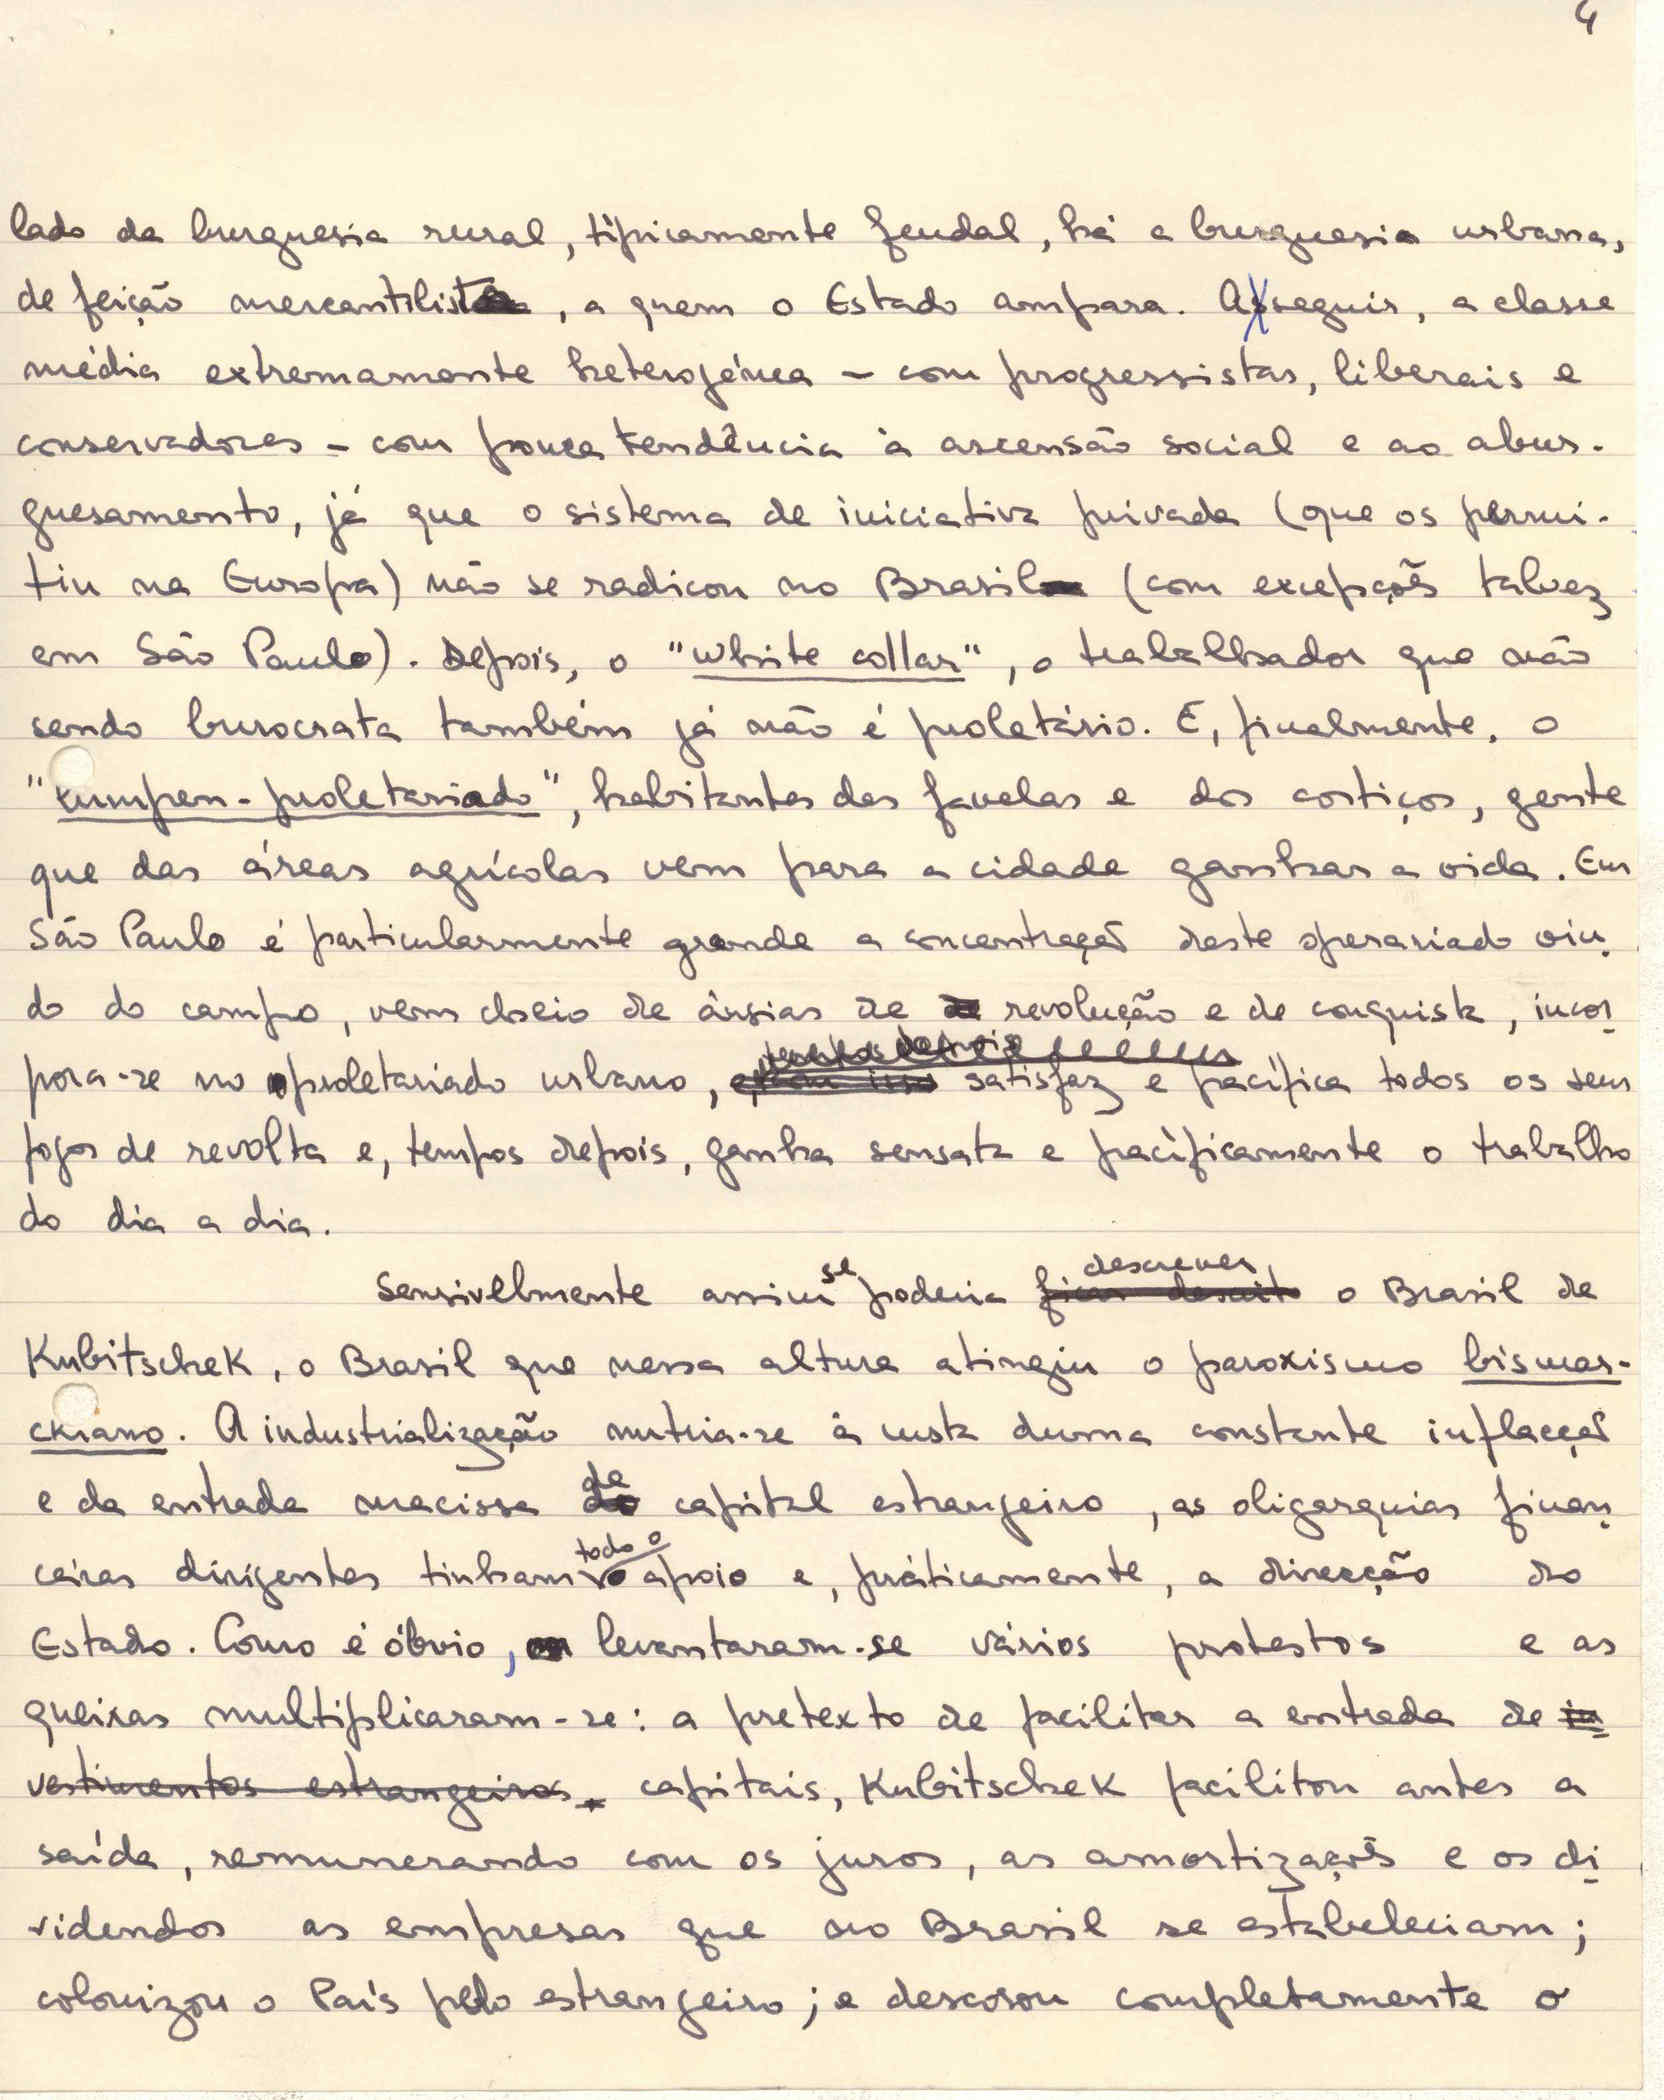 4
lado da burguesia rural, tìpicamente feudal, há a burguesia urbana,
de feição mercantilista, a quem o Estado ampara. A seguir, a classe
média extremamente heterogénea - com progressistas, liberais e
conservadores - com pouca tendência à ascensão social e ao abur-
guesamento, já que o sistema de iniciativa privada (que os permi-
tiu na Europa) não se radicou no Brasil (com excepções talvez
em São Paulo). Depois, o "white collar", o trabalhador que não
sendo burocrata também já não é proletário. E, finalmente, o
"lumpen-proletariado", habitantes das favelas e dos cortiços, gente
que das áreas agrícolas vem para a cidade ganhar a vida. Em
São Paulo é particularmente grande a concentração deste operariado vin
do do campo, vem cheio de ânsias de revolução e de conquista, incor
pora-se no proletariado urbano, satisfaz e pacífica todos os seus
fogos de revolta e, tempos depois, ganha sensata e pacìficamente o trabalho
do dia a dia.
Sensivelmente assim se poderia descrever o Brasil de
Kubitschek, o Brasil que nessa altura atingiu o paroxismo bismar-
ckiano. A industrialização nutria-se à custa duma constante inflacção
e da entrada macissa de capital estrangeiro, as oligarquias finan
ceiras dirigentes tinham todo o apoio e, pràticamente, a direcção do
Estado. Como é óbvio, levantaram-se vários protestos e as
queixas multiplicaram-se: a pretexto de facilitar a entrada de in
vestimentos estrangeiros capitais, Kubitschek facilitou antes a
saída, remunerando com os juros, as amortizações e os di
videndos as empresas que no Brasil se estabeleciam;
colonizou o País pelo estrangeiro; e descosou completamente o